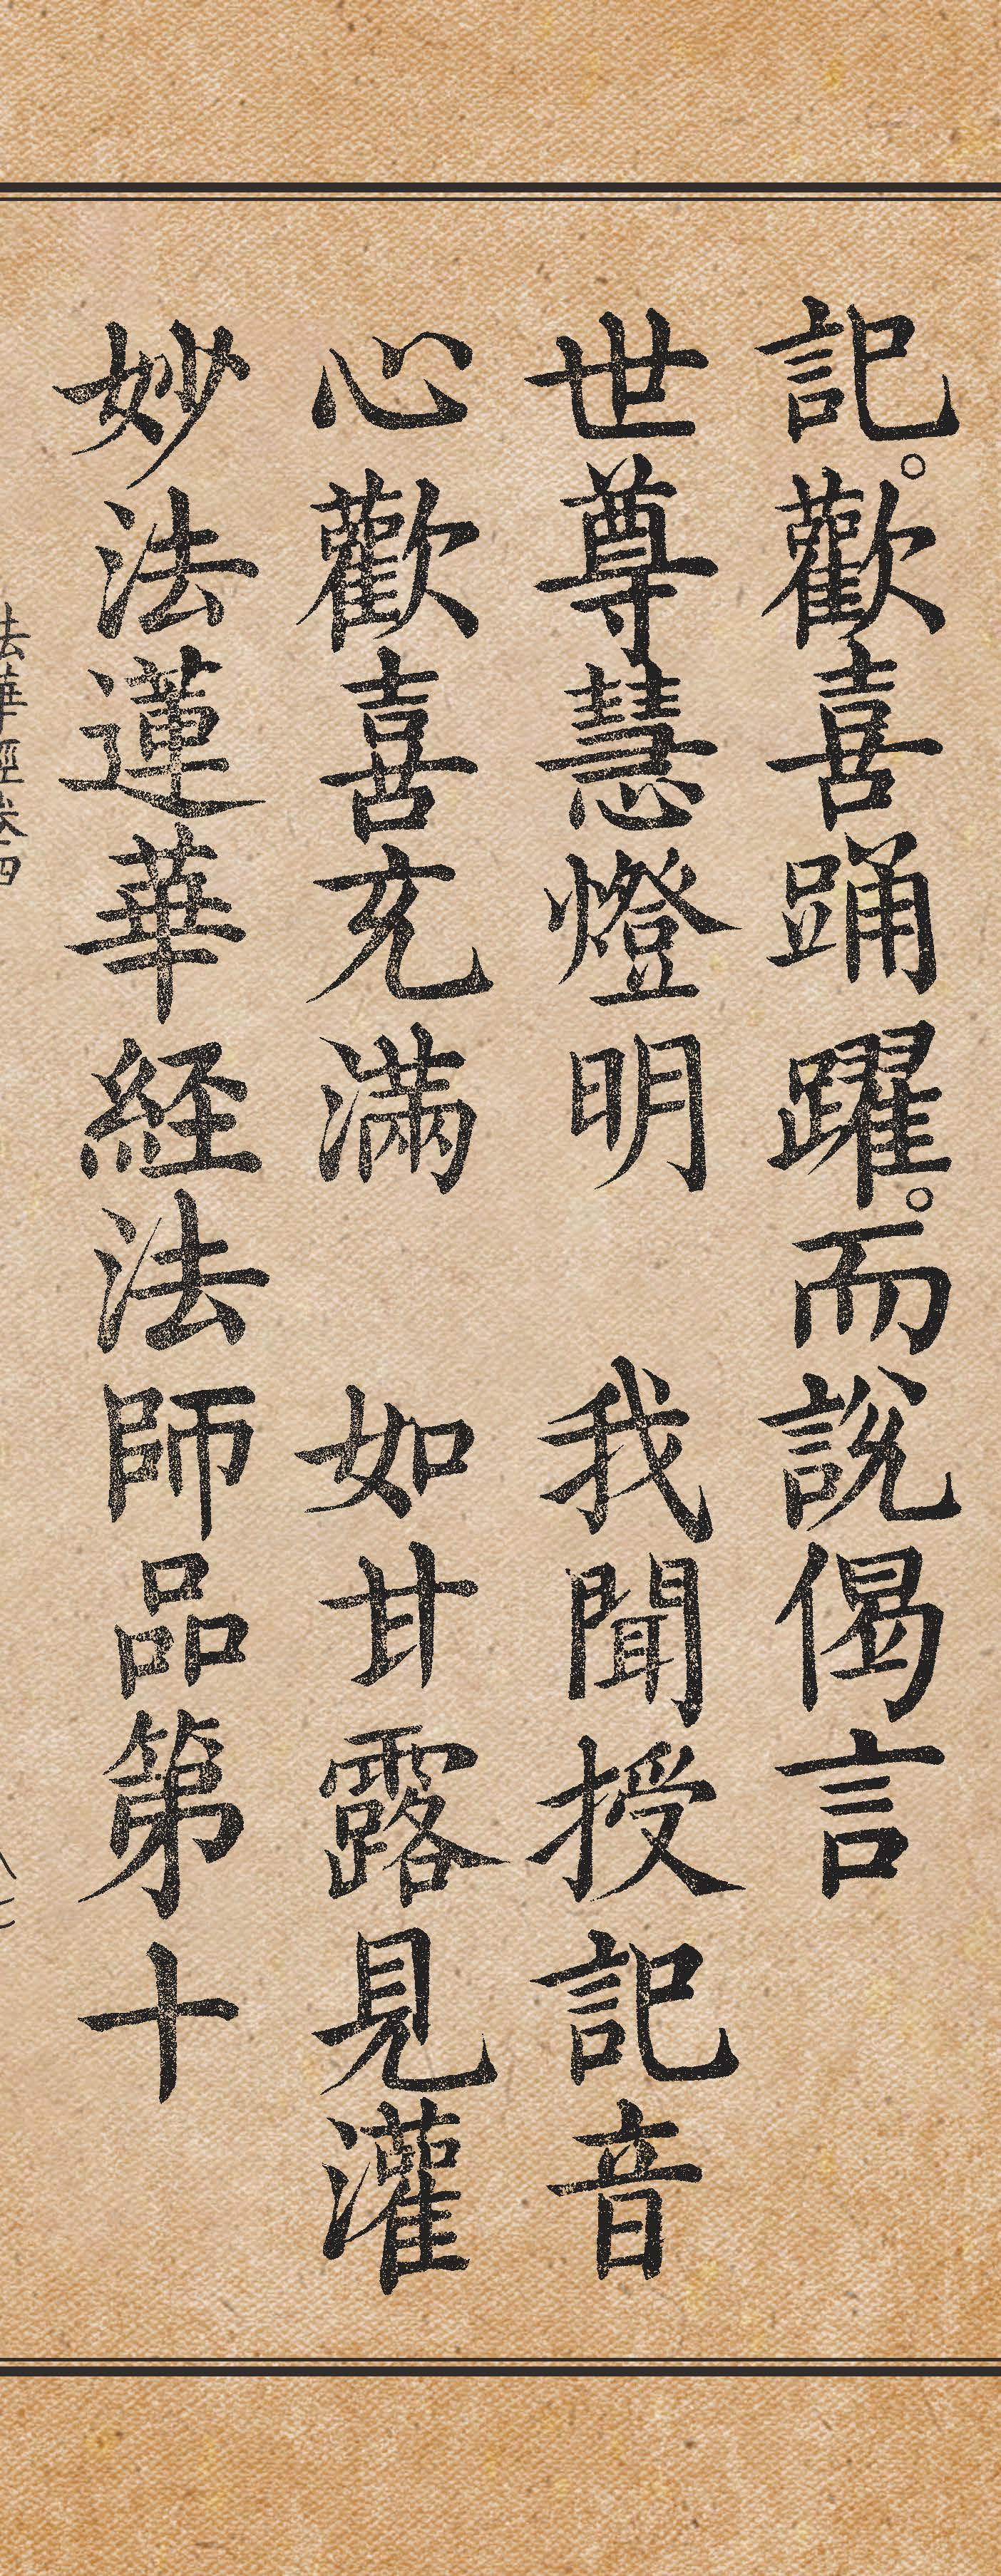 記。歡喜踊躍。而說偈言
世尊慧燈明　我聞授記音
心歡喜充滿　如甘露見灌
妙法蓮華経法師品第十
法華經卷四